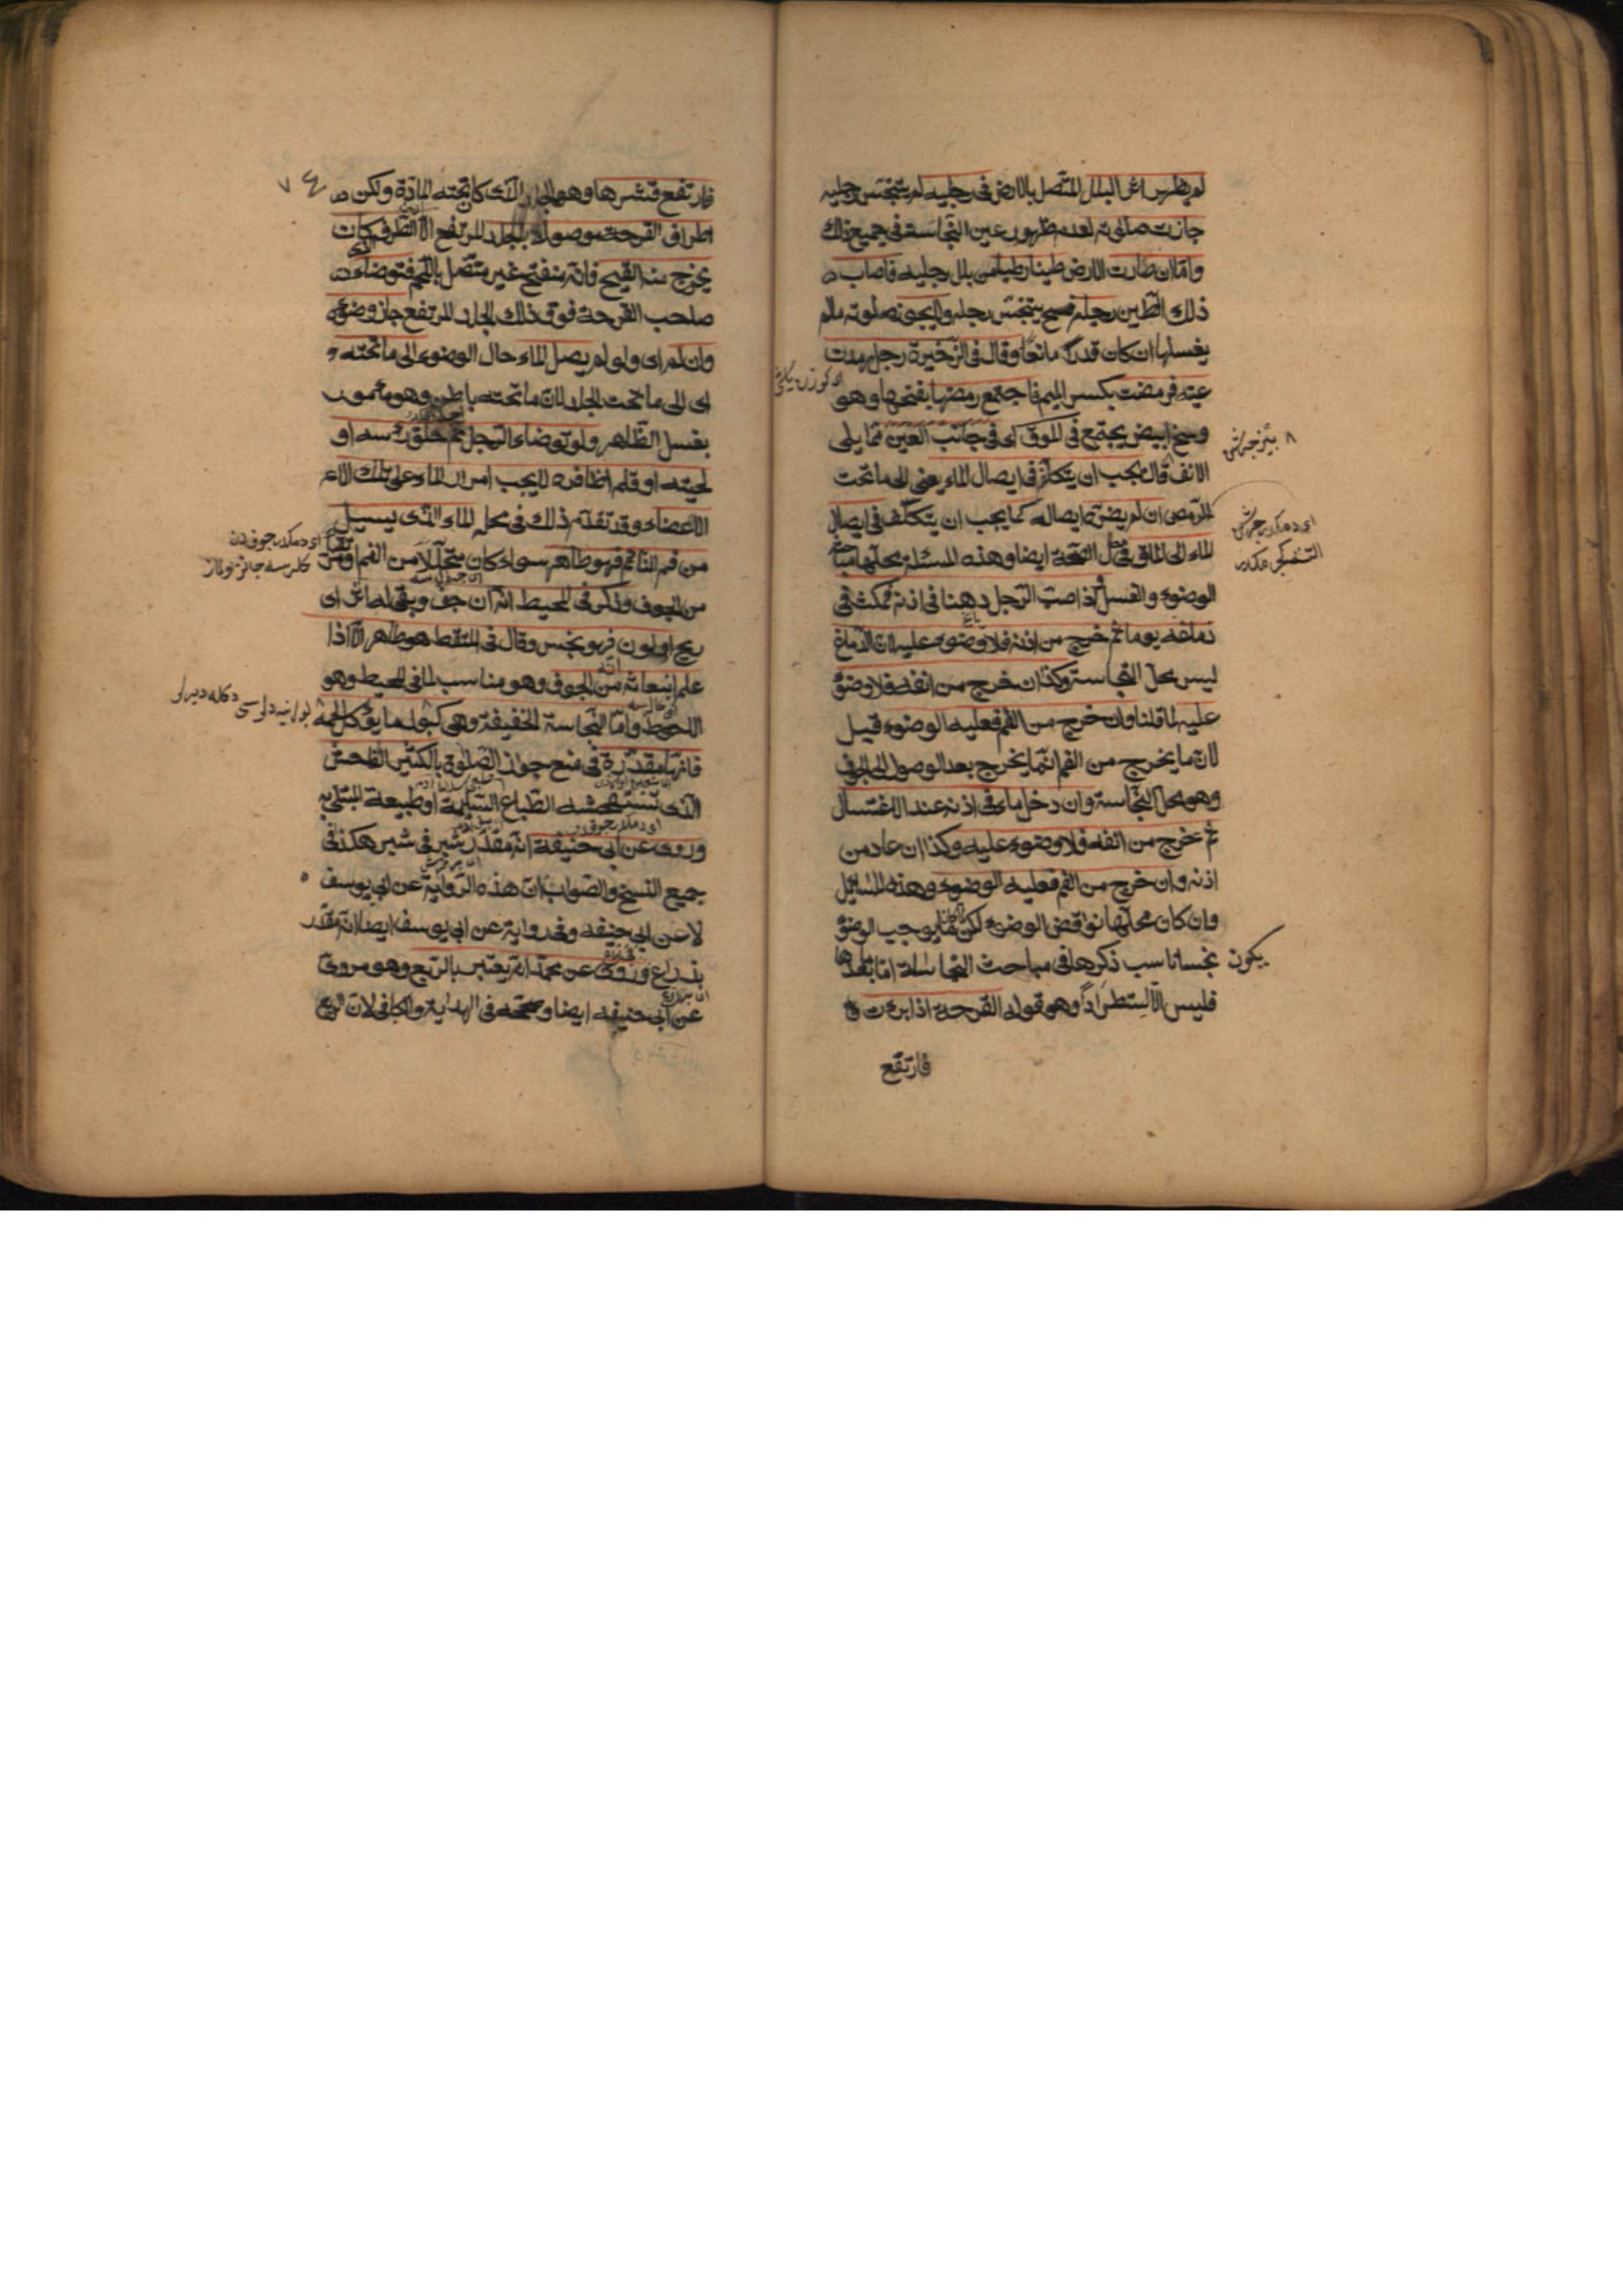 لم يظهر اثر البلل المتصل بالارض فى رجليه لم يتنجس رجليه
جازت صلوته لعدم ظهور عين النجاسة فى جميع ذلك
واما ان صارت الارض طينا رطبا من بلل رجليه فاصاب
ذلك الطين رجله فح يتنجس رجله ولا يجوز صلوته مالم
يغسلها ان كان قدرا مانعا وقال فى الذخيرة رجل رمدت
عينه فرمضت بكسر الميم فاجتمع رمضها بفتحها وهو
وسخ ابيض يجتمع فى الموق اى فى جانب العين مما يلى
الانف قال يجب ان يتكلف فى ايصال الماء يعنى الى ما تحت
الرمص ان لم يضره ايصاله كما يجب ان يتكلف فى ايصال
الماء الى الماق فى حال الصحة ايضا وهذه المسئلة محلها مباحث
الوضوء والغسل اذا صب الرجل دهنا فى اذنه فمكث فى
دماغه يوما ثم خرج من اذنه فلا وضوء عليه لان الدماغ
ليس محل النجاسة وكذا ان خرج من انفه فلا وضوء
عليه لما قلنا وان خرج من الفم فعليه الوضوء قيل
لان ما يخرج من الفم انما يخرج بعد الوصول الى الجوف
وهو محل النجاسة وان دخل ماء فى اذنه عند الاغتسال
ثم خرج من انفه فلا وضوء عليه وكذا ان عاد من
اذنه وان خرج من الفم فعليه الوضوء وهذه المسائل
وان كان محلها نواقض الوضوء لكن لما كان ما يوجب الوضوء
يكون نجسا ناسب ذكرها فى مباحث النجاسة اما ما بعدها
فليس الا استطرادا وهو قوله القرحة اذا برءت
فارتفع
٧٤
فارتفع قشرها وهو الجلد الذى كان تحته المادة ولكن
اطراف القرحة موصولة بالجلد المرتفع الا الطرف الذى كان
يخرج منه القيح فانه منفتح غير متصل باللحم فتوضاء
صاحب القرحة فوق ذلك الجلد المرتفع جاز وضوءه
وان لم اى ولو لم يصل الماء حال الوضوء الى ما تحته
اى الى ما تحت الجلد لان ما تحته باطن وهو مأمور
بغسل الظاهر ولو توضاء الرجل ثم حلق رأسه او
لحيته او قلم اظافره لا يجب امرار الماء على تلك الاع
الاعضاء وقد تقدم ذلك فى محله الماء الذى يسيل
من فم النائم فهو طاهر سواء كان متحللا من الفم او مرتقيا
من الجوف وذكر فى المحيط انه ان جف وبقى له اثر اى
ريح او لون فهو نجس وقال فى الملتقط هو طاهر الا اذا
علم انبعاثه من الجوف وهو مناسب لما فى المحيط وهو
الاحوط واما النجاسة الخفيفة وهى كبول ما يؤكل لحمه
فانها مقدرة فى منع جواز الصلوة بالكثير الفاحش
الذى تستفحشه الطباع السليمة او طبيعة المبتلى به
وروى عن ابى حنيفة انه مقدر بشبر فى شبر هكذا فى
جميع النسخ والصواب ان هذه الرواية عن ابى يوسف
لا عن ابى حنيفه وفى رواية عن ابى يوسف ايضا انه مقدر
بذراع وروى عن محمد انه يعتبر بالربع وهو مروى
عن ابى حنيفه ايضا وصححه فى الهداية والكافى لان الربع